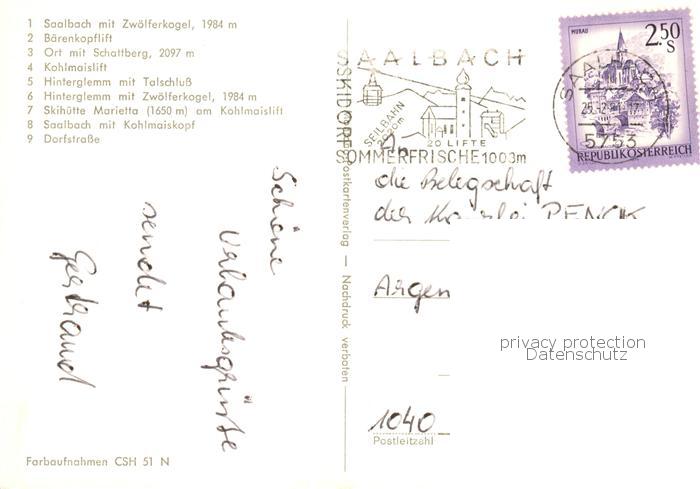 1 Saalbach mit Zwölferkogel, 1984 m
2 Bärenkopflift
3 Ort mit Schattberg, 2097 m
4 Kohlmaislift
5 Hinterglemm mit Talschluß
6 Hinterglemm mit Zwölferkogel, 1984 m
7 Skihütte Marietta (1650 m) am Kohlmaislift
8 Saalbach mit Kohlmaiskopf
9 Dorfstraße
Schöne
Urlaubsgrüße
sendet
Gertraud
Farbaufnahmen CSH 51 N
Postkartenverlag — Nachdruck verboten
SAALBACH
SKIDORF
SEILBAHN
20 LIFTE
SOMMERFRISCHE 1003m
MURAU
2.50
S
REPUBLIK ÖSTERREICH
SAALBACH
5753
An
die Belegschaft
der Kanzlei
Argen
privacy protection
Datenschutz
1040
Postleitzahl